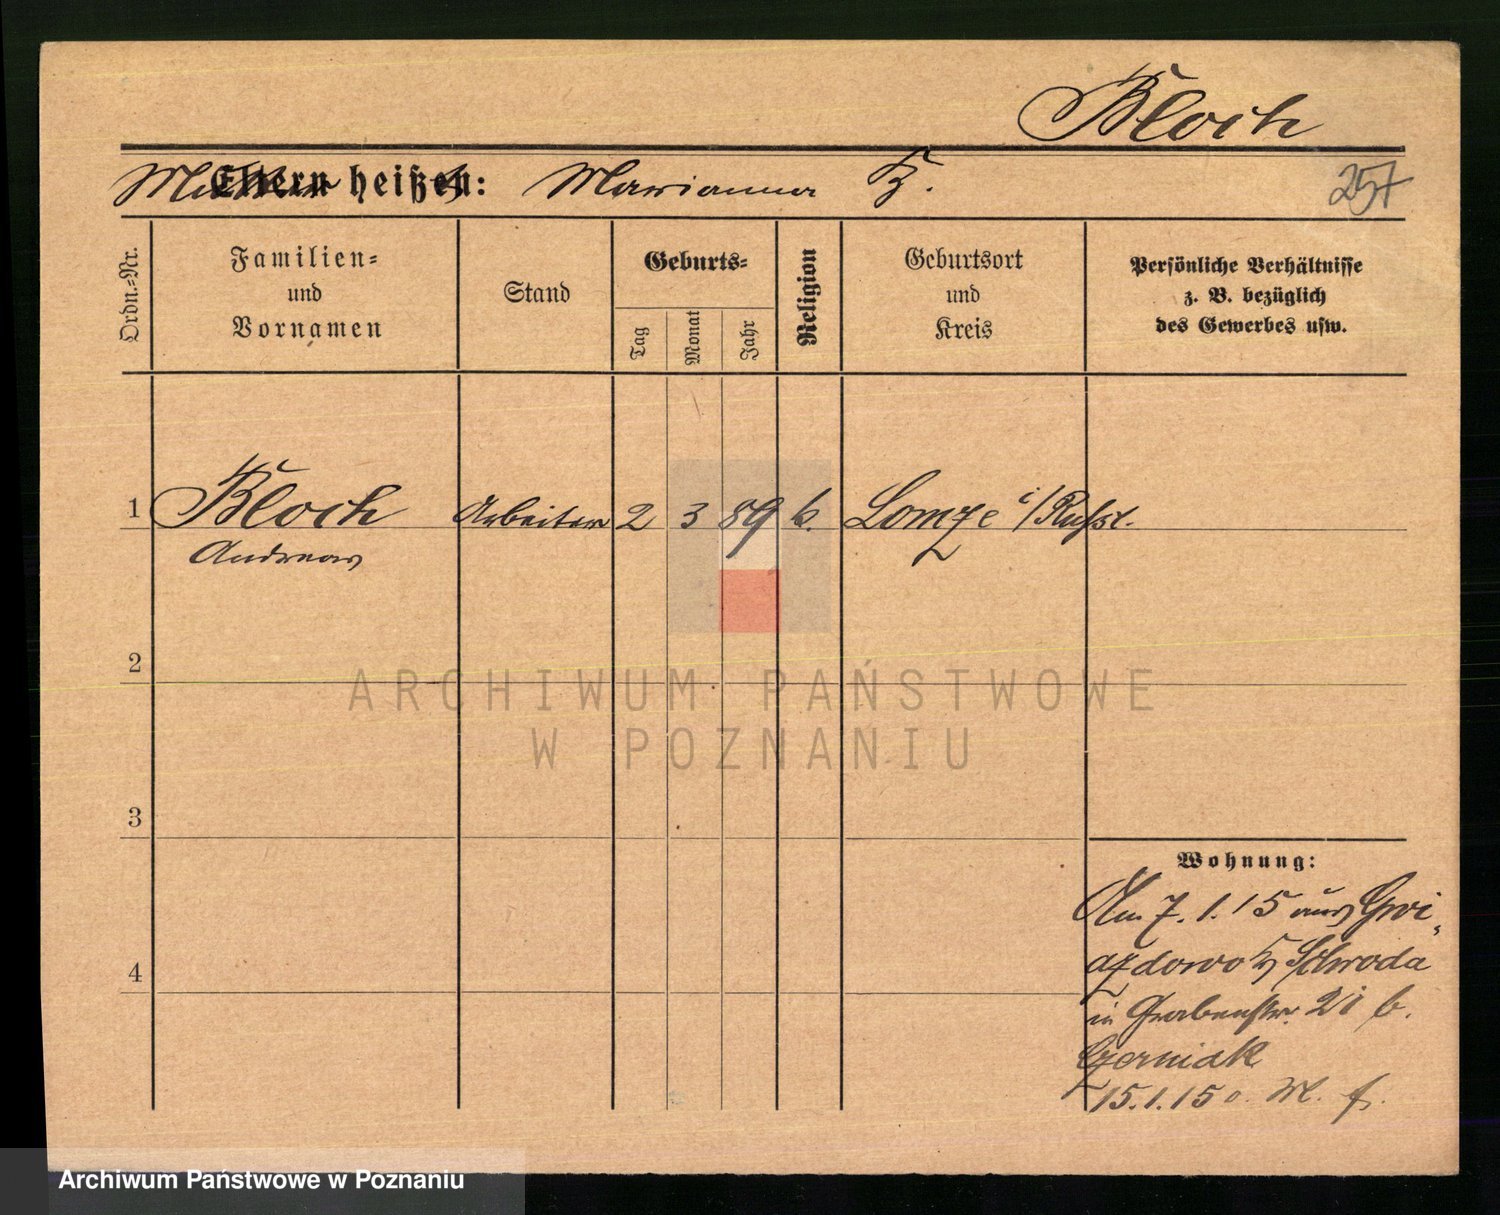 Bloch
Mutter heißt: Marianna K.
257
Ordn.-Nr.
Familien-
und
Vornamen
Stand
Geburts-
Tag
Monat
Jahr
Religion
Geburtsort
und
Kreis
Persönliche Verhältnisse
z. B. bezüglich
des Gewerbes usw.
1 Bloch Arbeiter 2 3 89 k. Lomze i/Rußl.
Andreas
2
ARCHIWUM PAŃSTWOWE
W POZNANIU
3
Wohnung:
Am 7.1.15 aus Gwi-
azdowo Schroda
4
in Grabenstr. 21 b.
Czerniak
15.1.15 o. M. f.
Archiwum Państwowe w Poznaniu